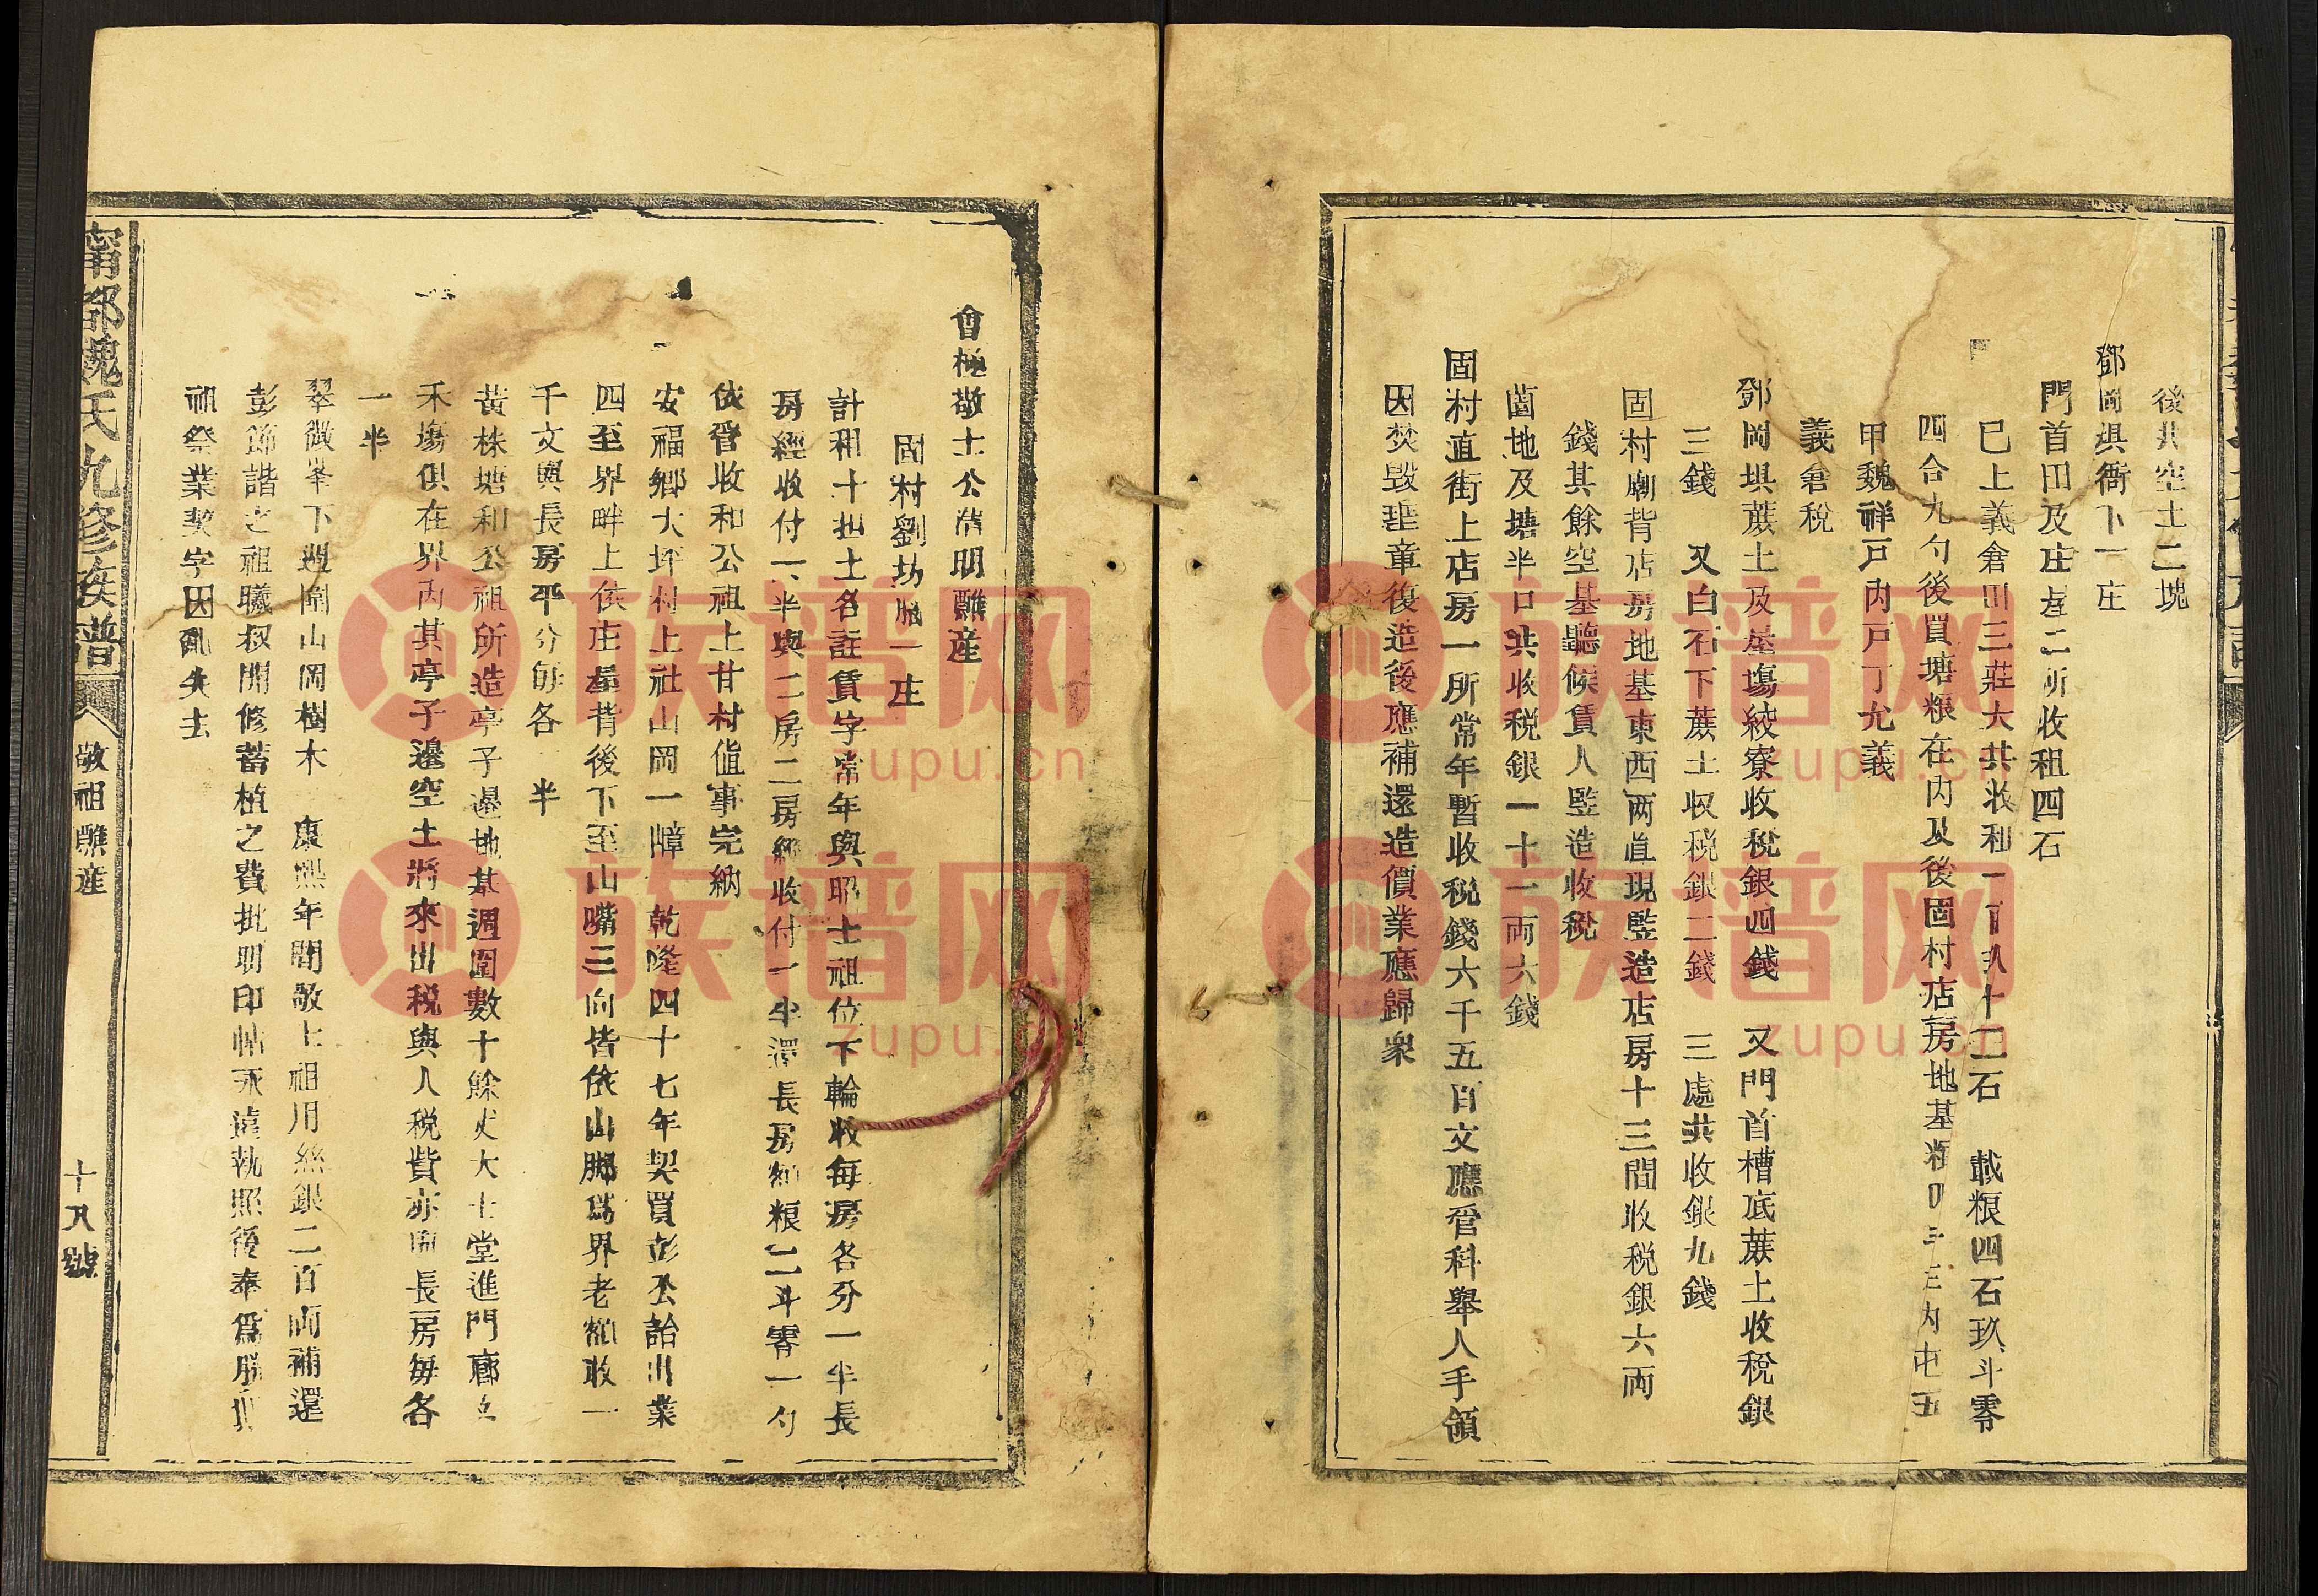 後共空土二塊
鄧岡垻衙下一庄
門首田及庄屋二所收租四石
已上義倉田三莊大共收租一百玖十二石 載粮四石玖斗零
四合九勺後買塘粮在内及後固村店房地基粮
甲魏祥戸内戸丁允義
義倉稅
鄧岡垻蔗土及屋塲絞寮收稅銀四錢 又門首槽底蔗土收稅銀
三錢 又白石下蔗土收税銀二錢 三處共收銀九錢
固村廟背店房地基東西两直現豎造店房十三間收税銀六両
錢其餘空基聽候賃人豎造收稅
菌地及塘半口共收税銀一十一両六錢
固村直街上店房一所常年暫收税錢六千五百文應管科舉人手領
因焚毁重復造後應補還造價業應歸衆
會極敬士公浩明醮産
固村劉坊一庄
計租十土各註賃字常年與昭士祖位下輪收每房各分一半長
房經收付一半與二房二房經收付一半還長房額粮二斗零一勺
依管收和公祖上甘村値事完納
安福郷大坪村上社山岡一嶂 乾隆四十七年契買彭丕詒出業
四至界畔上依庄屋背後下至山嘴三向皆依山脚爲界老額收一
千文與長房平分每各一半
黄株塘和公祖所造亭子邊地基週圍數十餘丈大士堂進門
禾塲俱在界内其亭子邊空土將來出税與人税貲亦與長房每各
一半
翠微峯下週圍山岡樹木 康熙年間敬士祖用絲銀二百両補還
彭節諧之祖曦叔開修蓄植之費批明印帖永遠執照後奉爲
祖祭業契字因亂失去
甯都魏氏九修族譜
敬祖醮産
十八號
族谱网
zupu.cn
族谱网
zupu.cn
族谱网
zupu.cn
族谱网
zupu.cn